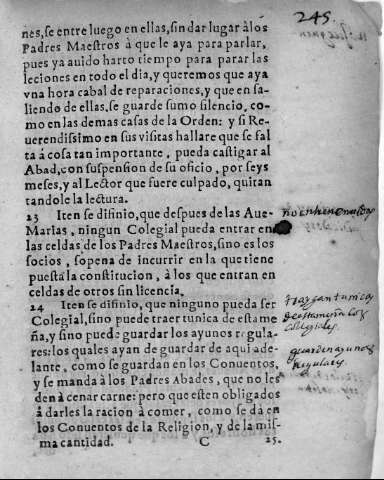 245.
nes, se entre luego en ellas, sin dar lugar àlos
Padres Maestros à que le aya para parlar,
pues ya auido harto tiempo para parar las
leciones en todo el dia, y queremos que aya
vna hora cabal de reparaciones, y que en sa-
liendo de ellas, se guarde sumo silencio, co-
mo en las demas casas de la Orden: y si Re-
uerendissimo en sus visitas hallare que se fal
ta á cosa tan importante, pueda castigar al
Abad, con suspension de su oficio, por seys
meses, y al Lector que fuere culpado, quitan
tandole la lectura.
23 Iten se difinio, que despues de las Aue-
Marias, ningun Colegial pueda entrar en
las celdas de los Padres Maestros, sino es los
socios, sopena de incurrir en la que tiene
puesta la constitucion, à los que entran en
celdas de otros sin licencia.
24 Iten se difinio, que ninguno pueda ser
Colegial, sino puede traer tunica de estame
ña, y sino puede guardar los ayunos regula-
res: los quales ayan de guardar de aqui ade-
lante, como se guardan en los Conuentos,
y se manda à los Padres Abades, que no les
den à cenar carne: pero que esten obligados
à darles la racion à comer, como se dà en
los Conuentos de la Religion, y de la mis-
ma cantidad. C 25.
traygan tunica
de estameña los
colegiales.
guarden ayunos
regulares.